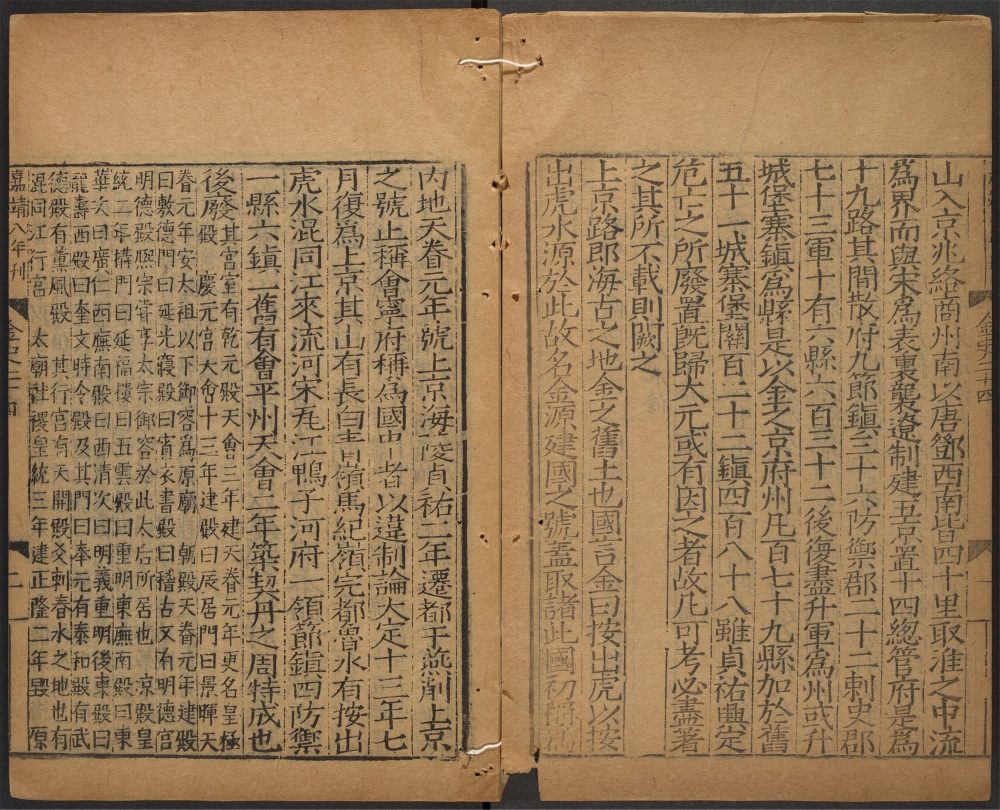 山入京兆絡商州南以唐鄧西南皆四十里取淮之中流
為界而與宋為表裏襲遼制建五京置十四總管府是為
十九路其間散府九節鎮三十六防禦郡二十二刺史郡
七十三軍十有六縣六百三十二後復盡升軍為州或升
城堡寨鎮為縣是以金之京府州凡百七十九縣加於舊
五十一城寨堡關百二十二鎮四百八十八雖貞祐興定
危亡之所廢置既歸大元或有因之者故凡可考必盡著
之其所不載則闕之
上京路即海古之地金之舊土也國言金曰按出虎以按
出虎水源於此故名金源建國之號蓋取諸此國初稱為
內地天眷元年號上京海陵貞祐二年遷都于燕削上京
之號止稱會寧府稱為國中者以違制論大定十三年七
月復為上京其山有長白青嶺馬紀嶺完都魯水有按出
虎水混同江來流河宋瓦江鴨子河府一領節鎮四防禦
一縣六鎮一舊有會平州天會二年築契丹之周特成也
後廢其宮室有乾元殿天會三年建天眷元年更名皇極
殿 慶元宮天會十三年建殿曰辰居門曰景暉天
眷元年安太祖以下御容為原廟 朝殿天眷元年建殿
曰敷德門曰延光寢殿曰宵衣書殿曰稽古又有明德宮
明德殿熙宗嘗享太宗御容於此太后所居也涼殿皇
統二年構門曰延福樓曰五雲殿曰重明東廡南殿曰東
華次曰廣仁西廡南殿曰西清次曰明義重明後東殿曰
龍壽西殿曰奎文時令殿及其門曰奉元有泰和殿有武
德殿有薰風殿 其行宮有天開殿爻剌春水之地也有
混同江行宮 太廟社稷皇統三年建正隆二年毀 原
嘉靖八年刊
金史二十四
二